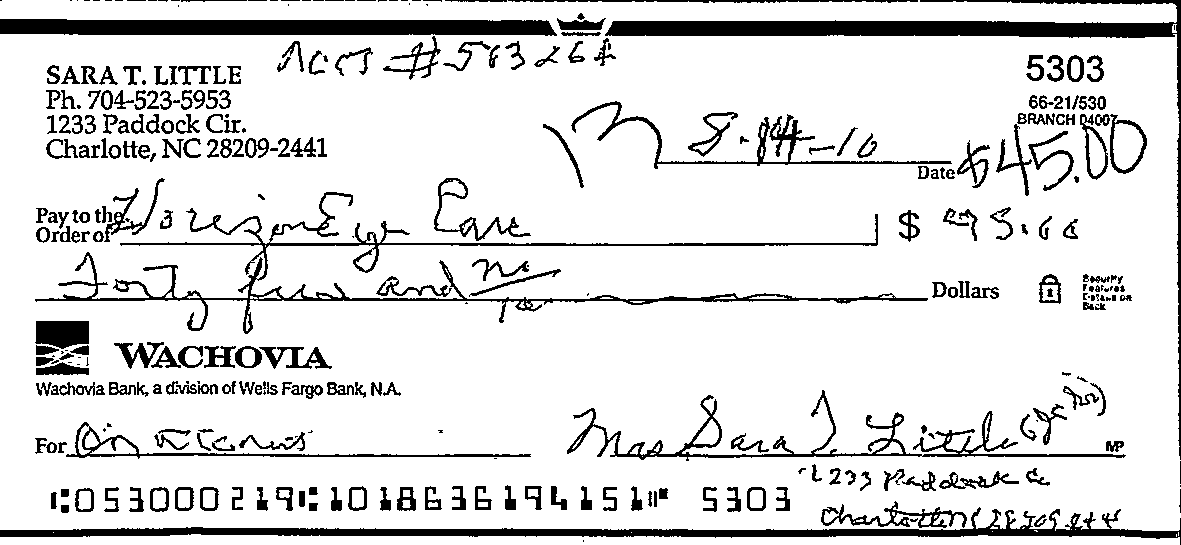 SARA T. LITTLE
Ph. 704-523-5953
1233 Paddock Cir.
Charlotte, NC 28209-2441
5303
66-21/530
BRANCH 04007
8-14-10
Date
$45.00
Pay to the
Order of Horizon Eye Care
$ 45.00
Forty five and no/100
Dollars
Security
Features
Details on
Back
WACHOVIA
Wachovia Bank, a division of Wells Fargo Bank, N.A.
For
Mrs Sara T. Little
MP
1233 Paddock
⑆053000219⑆1018636194151⑈ 5303
Charlotte NC